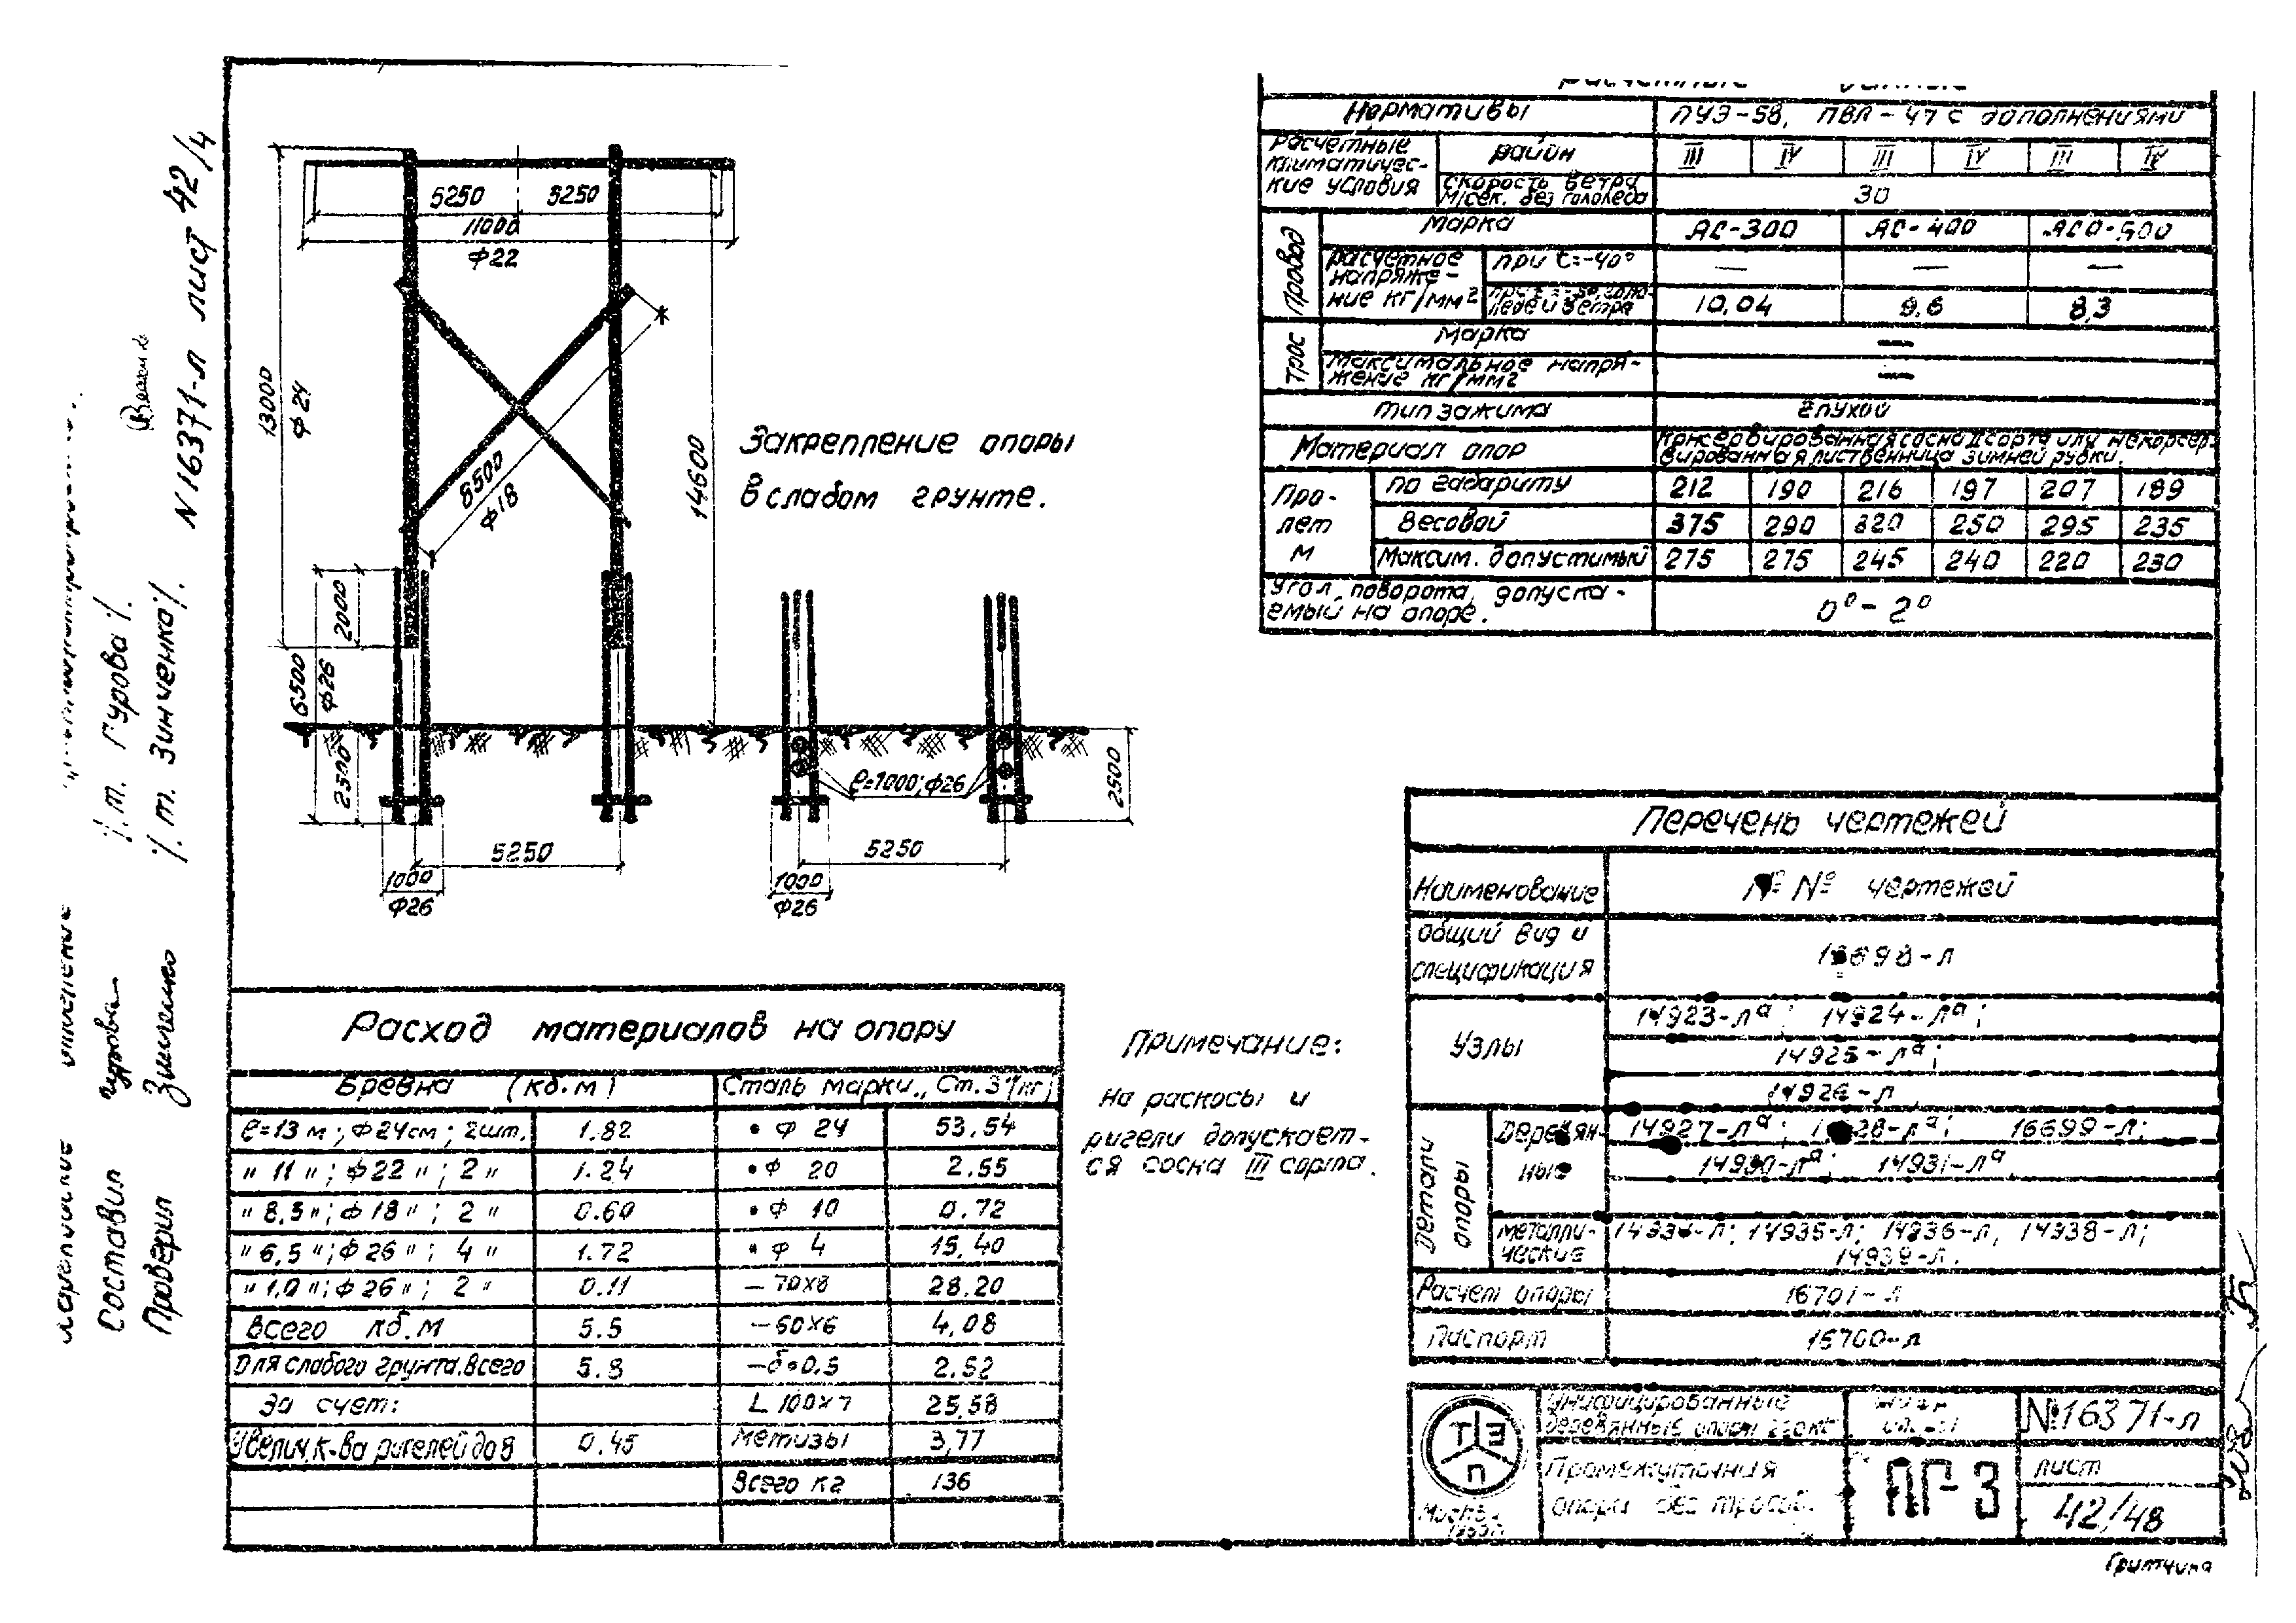 N 16371-л лист 42/4
/. т. Гурова /.
/. т. Зинченко /.
Составил
Проверил
5250
5250
11000
ф22
13000
ф24
8500
ф18
14600
2000
6500
ф26
2500
5250
1000
ф26
Закрепление опоры
в слабом грунте.
ℓ=1000; ф26
2500
5250
1000
ф26
Расчетные данные
Нормативы
ПУЭ-58, ПВЛ-47 с дополнениями
Расчетные климатичес-
кие условия
район
III IV III IV III IV
скорость ветра
м/сек. без гололеда
30
Провод
Марка
АС-300 АС-400 АСО-500
расчетное
напряже-
ние кг/мм2
при t=-40°
— — —
10,04 9,6 8,3
Трос
Марка
—
Максимальное напря-
жение кг/мм2
—
Тип зажима
глухой
Материал опор
Консервированная сосна II сорта или неконсер-
вированная лиственница зимней рубки.
Про-
лет
м
по габариту
212 190 216 197 207 189
Весовой
375 290 320 250 295 235
Максим. допустимый
275 275 245 240 220 230
Угол поворота, допуска-
емый на опоре.
0° - 2°
Перечень чертежей
Наименование
№ № чертежей
Общий вид и
спецификация
16698-л
Узлы
14923-лª; 14924-лª;
14925-лª;
14926-л
Детали опоры
Деревян-
ные
14927-лª; 28-лª; 16699-л;
14930-лª; 14931-лª
металли-
ческие
14934-л; 14935-л; 14936-л, 14938-л;
14939-л.
Расчет опоры
16701-л
Паспорт
16700-л
Расход материалов на опору
Бревна (кб.м)
Сталь марки „Ст.3" (кг)
ℓ=13 м; ф24см; 2шт. 1.82 • ф 24 53,54
" 11 "; ф22 "; 2 " 1.24 • ф 20 2.55
" 8,5 "; ф18 "; 2 " 0.60 • ф 10 0.72
" 6,5 "; ф26 "; 4 " 1.72 • ф 4 15,40
" 1,0 "; ф26 "; 2 " 0.11 — 70×8 28,20
Всего кб.м 5.5 — 60×6 4,08
Для слабого грунта. всего 5.8 — δ=0.5 2.52
За счет: L 100×7 25,58
Увелич. к-ва ригелей до 8 0.45 метизы 3,77
Всего кг 136
Примечание:
На раскосы и
ригели допускает-
ся сосна III сорта.
ТЭП
Москва
Унифицированные
деревянные опоры 220 кв
Промежуточная
опора без тросов.
ПГ-3
№16371-л
лист
42/48